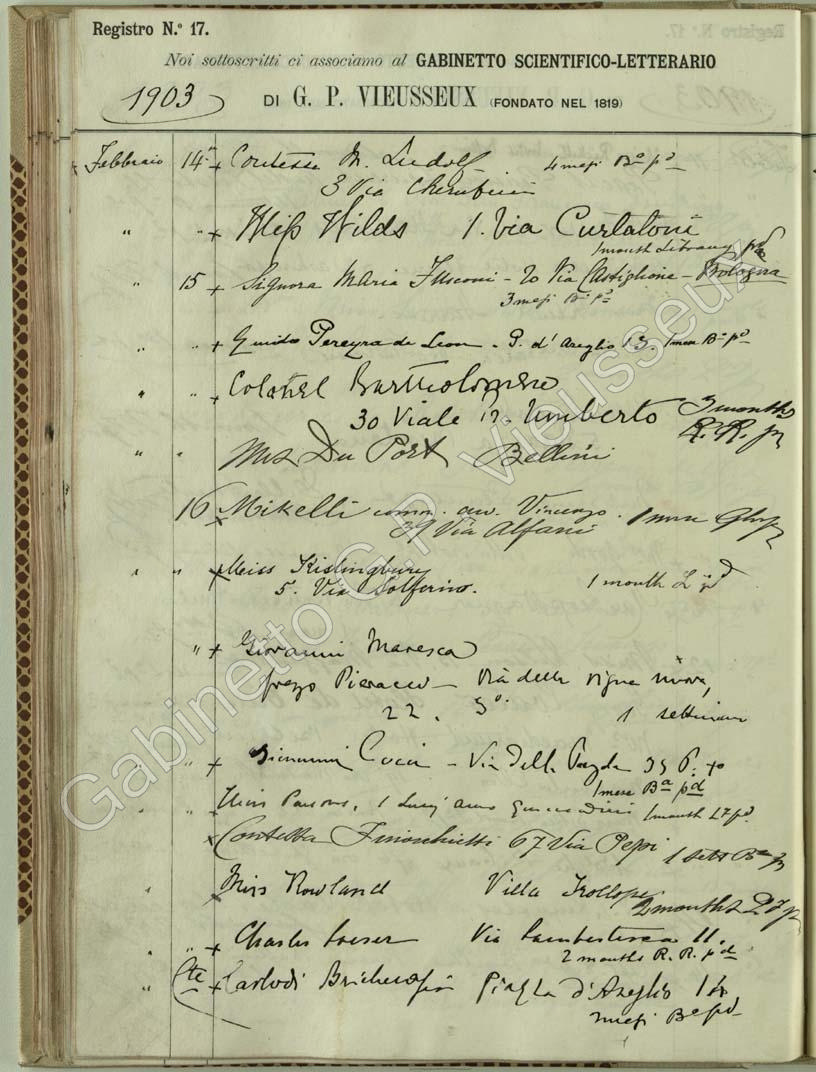 Registro N.º 17.
Noi sottoscritti ci associamo al GABINETTO SCIENTIFICO-LETTERARIO
1903 DI G. P. VIEUSSEUX (FONDATO NEL 1819)
Febbraio 14 + Contessa M. Ludolf 4 mesi Bª pd
3 Via Cherubini
" " + Miss Wilds 1. Via Curtatone
1 month Library pd
" 15 + Signora Maria Fusconi - 20 Via Castiglione - Bologna
3 mesi Bª pd
" " + Guido Pereyra de Leon - P. d'Azeglio 13. 1 mese Bª pd
" " + Colonel Bartholomew
30 Viale P. Umberto 3 months
R. R. p
" " Mrs Du Port Bellini
16 + Mikelli comm. avv. Vincenzo. 1 mese
39 Via Alfani
" " + Miss Kislingbury
5. Via Solferino. 1 month L pd
" + Giovanni Maresca
presso Pieracco - Via della Vigna nuova,
22. 3º. 1 settimana
" " + Giovanni Cocci - Via della 35 P. to
1 mese Bª pd
" Miss Parsons, 1 Lung'arno Guicciardini 1 month L7 pd.
+ Contessa Finocchietti 67 Via Pepi 1 sett Bª p
" + Miss Rowland Villa Trollope
2 months L7 p
" " + Charles Loeser Via Lambertesca 11.
2 months R. R. pd
" Cte + Carlo di Bricherasio Piazza d'Azeglio 14
mesi Bª pd
Gabinetto G.P. Vieusseux